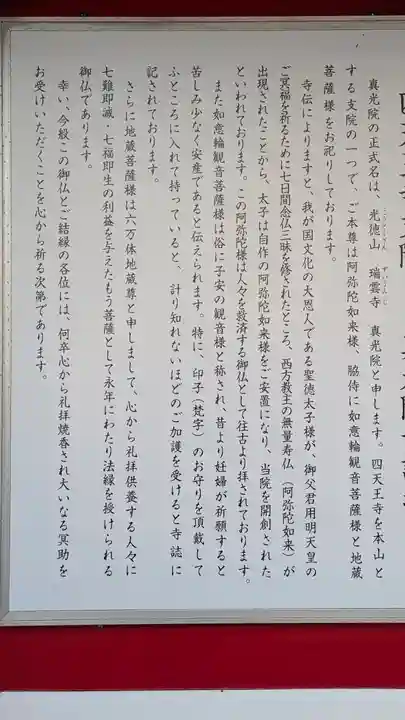 真光院の正式名は、光徳山　瑞雲寺　真光院と申します。四天王寺を本山と
する支院の一つで、ご本尊は阿弥陀如来様、脇侍に如意輪観音菩薩様と地蔵
菩薩様をお祀りしております。
寺伝によりますと、我が国文化の大恩人である聖徳太子様が、御父君用明天皇の
ご冥福を祈るために七日間念仏三昧を修されたところ、西方教主の無量寿仏（阿弥陀如来）が
出現されたことから、太子は自作の阿弥陀如来様をご安置になり、当院を開創された
といわれております。この阿弥陀様は人々を救済する御仏として往古より拝されております。
また如意輪観音菩薩様は俗に子安の観音様と称され、昔より妊婦が祈願すると
苦しみ少なく安産であると伝えられます。特に、印子（梵字）のお守りを頂戴して
ふところに入れて持っていると、計り知れないほどのご加護を受けると寺誌に
記されております。
さらに地蔵菩薩様は六万体地蔵尊と申しまして、心から礼拝供養する人々に
七難即滅・七福即生の利益を与えたもう菩薩として永年にわたり法縁を授けられる
御仏であります。
幸い、今般この御仏とご結縁の各位には、何卒心から礼拝焼香され大いなる冥助を
お受けいただくことを心から祈る次第であります。